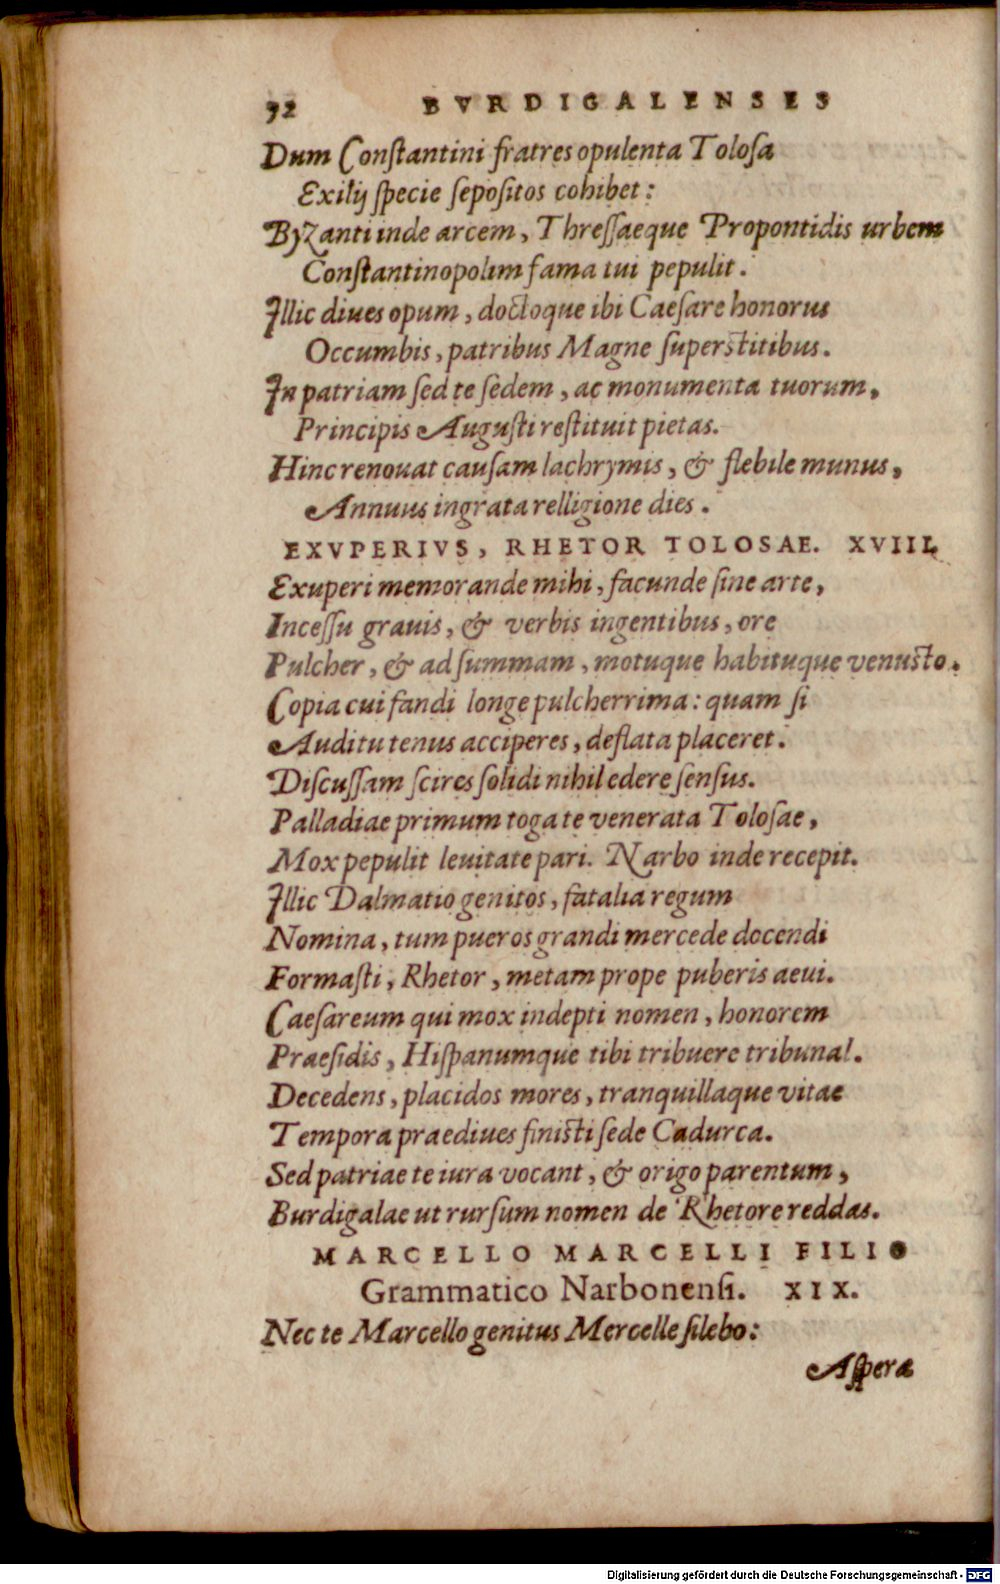 92 BVRDIGALENSES
Dum Conſtantini fratres opulenta Toloſa
Exilij ſpecie ſepoſitos cohibet:
Byzanti inde arcem, Threſſaeque Propontidis urbem
Conſtantinopolim fama tui pepulit.
Illic diues opum, doctoque ibi Caeſare honorus
Occumbis, patribus Magne ſuperſtitibus.
In patriam ſed te ſedem, ac monumenta tuorum,
Principis Auguſti reſtituit pietas.
Hinc renouat cauſam lachrymis, & flebile munus,
Annuus ingrata relligione dies.
EXVPERIVS, RHETOR TOLOSAE. XVIII.
Exuperi memorande mihi, facunde ſine arte,
Inceſſu grauis, & verbis ingentibus, ore
Pulcher, & ad ſummam, motuque habituque venuſto.
Copia cui fandi longe pulcherrima: quam ſi
Auditu tenus acciperes, deflata placeret.
Diſcuſſam ſcires ſolidi nihil edere ſenſus.
Palladiae primum toga te venerata Toloſae,
Mox pepulit leuitate pari. Narbo inde recepit.
Illic Dalmatio genitos, fatalia regum
Nomina, tum pueros grandi mercede docendi
Formaſti, Rhetor, metam prope puberis aeui.
Caeſareum qui mox indepti nomen, honorem
Praeſidis, Hiſpanumque tibi tribuere tribunal.
Decedens, placidos mores, tranquillaque vitae
Tempora praediues finiſti ſede Cadurca.
Sed patriae te iura vocant, & origo parentum,
Burdigalae ut rurſum nomen de Rhetore reddas.
MARCELLO MARCELLI FILIO
Grammatico Narbonenſi. XIX.
Nec te Marcello genitus Mercelle ſilebo:
Aſperæ
Digitalisierung gefördert durch die Deutsche Forschungsgemeinschaft - DFG